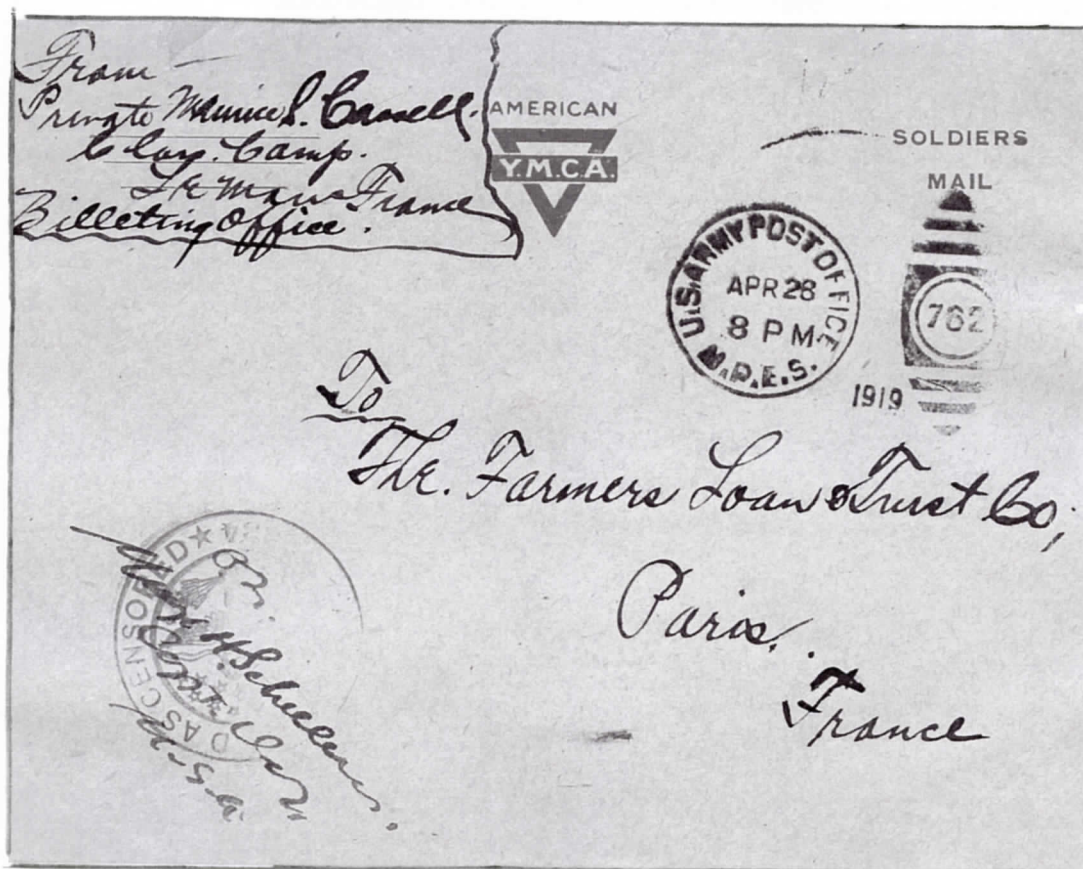 From
Private Maurice S. Cassell.
Clay. Camp.
Le Mans France
Billeting Office.
AMERICAN
Y.M.C.A.
SOLDIERS
MAIL
U.S. ARMY POST OFFICE
M.P.E.S.
APR 28
8 PM
1919
762
To
The. Farmers Loan & Turst Co,
Paris.
France
PASSED AS CENSORED